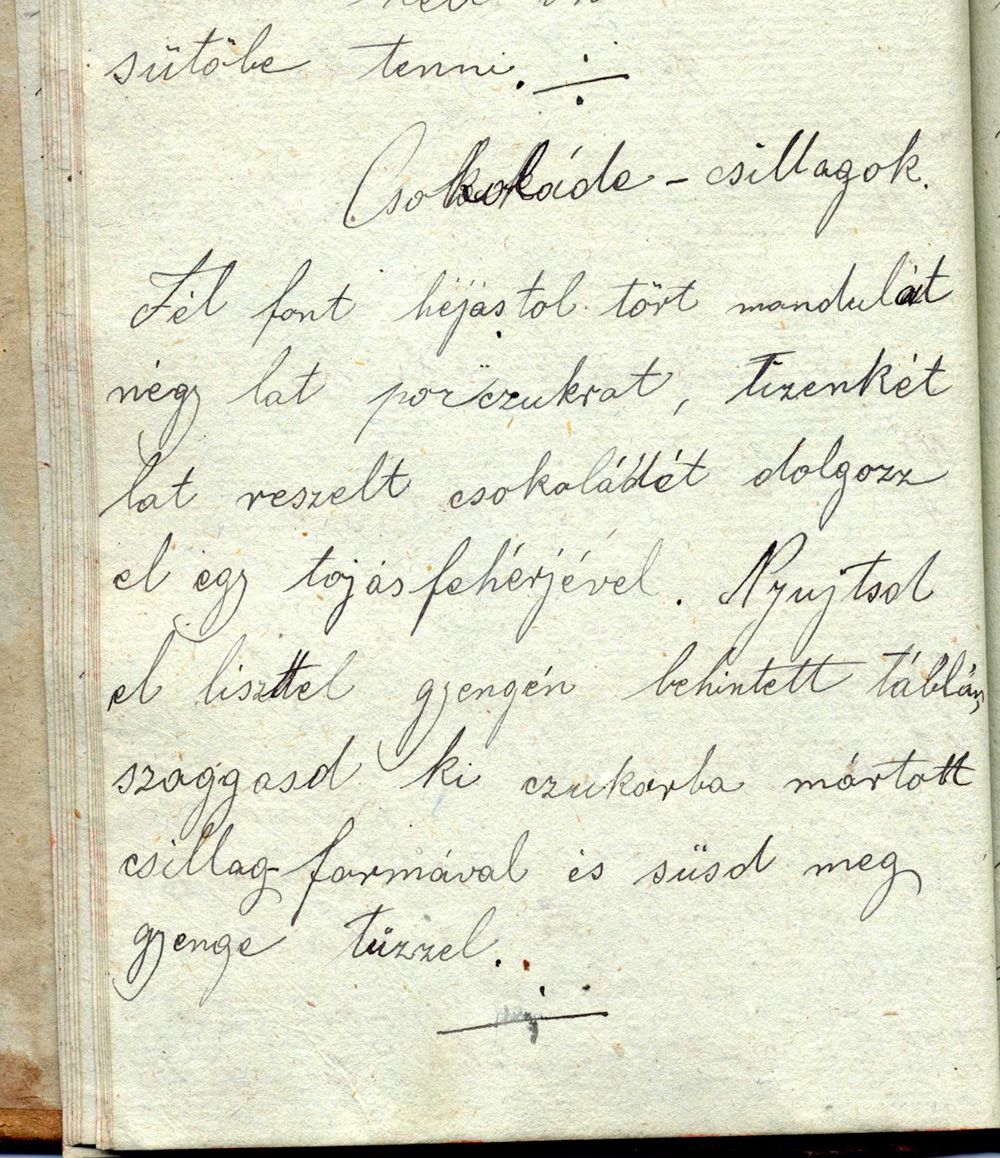 sütőbe tenni.
Csokoláde - csillagok.
Fél font héjastol tört mandulát
négy lat porczukrat, tizenkét
lat reszelt csokoládét dolgozz
el egy tojásfehérjével. Nyujtsd
el liszttel gyengén behintett táblán,
szaggasd ki czukorba mártott
csillag-formával és süsd meg
gyenge tűzzel.